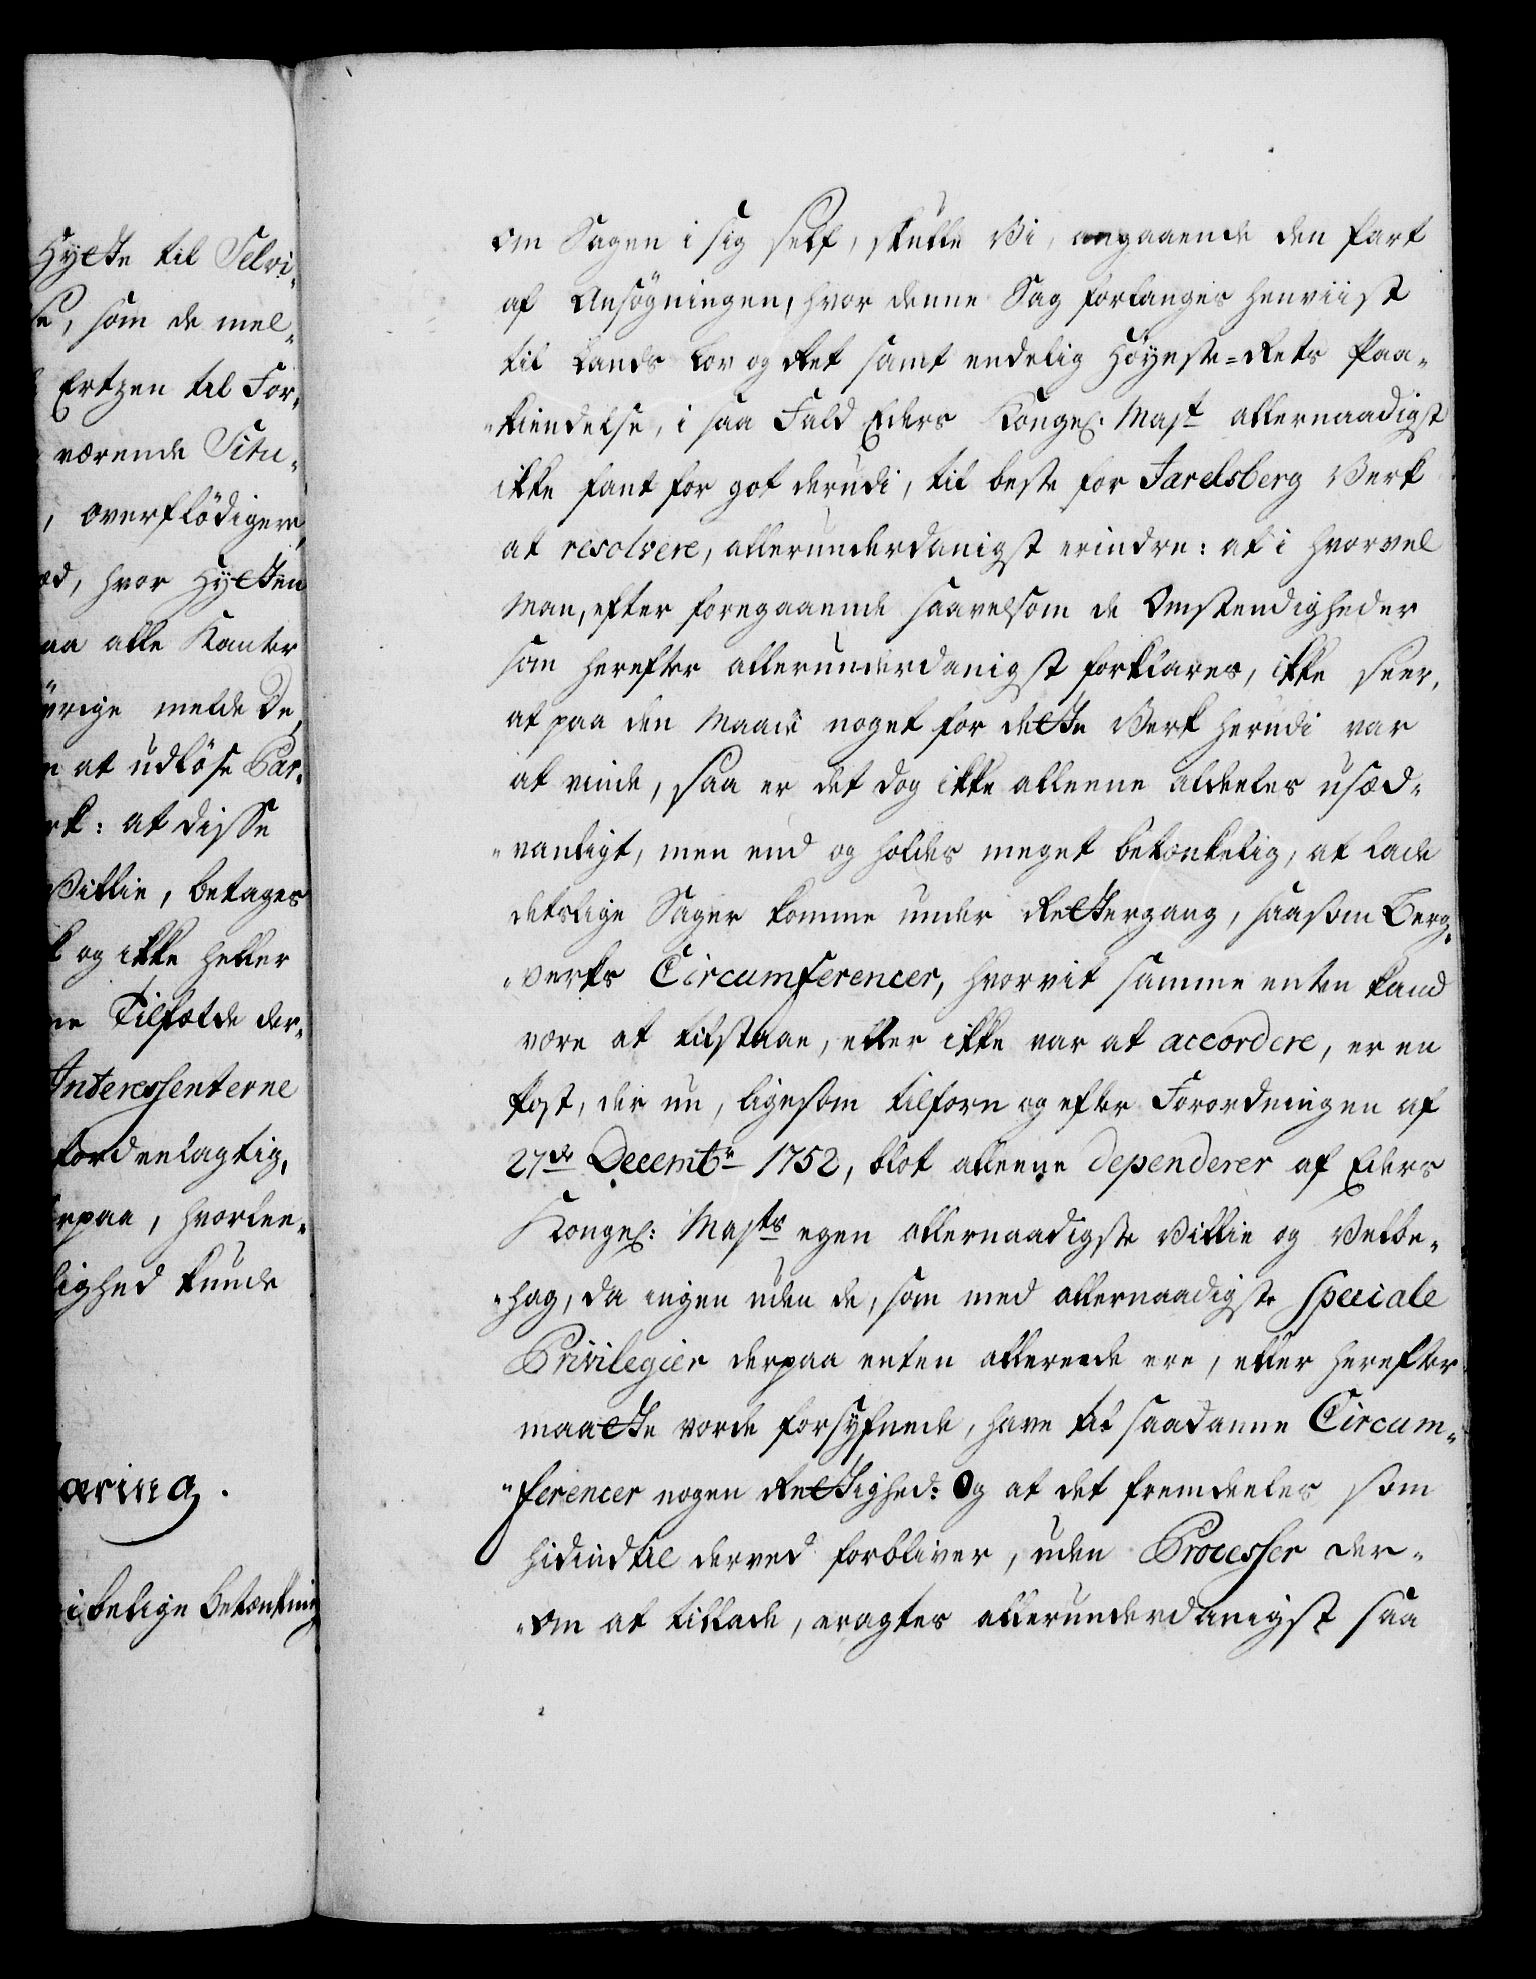 Hytte til Selvi-
se, som de mel-
Ertzen til For-
værende Situ-
, overflødigere,
ed, hvor Hytten
aa alle Kanter
øvrige melde De
n at udløse Par-
rk: at disse
Villie, betages
k og ikke heller
ne Tilfælde der-
Interessenterne
fordeelagtig,
erpaa, hvorlee-
lighed kunde
æring.
Betænkning
om Sagen i sig self, skulle Vi, angaaende den Part
af Ansögningen, hvor denne Sag forlanges henviist
til Lands Lov og Ret samt endelig Höyeste-Rets Paa-
"kiendelse, i saa Fald Eders Kongel: Mayt allernaadigst
ikke fant for got derudi, til beste for Jarelsberg Verk
at resolvere, allerunderdanigst erindre: at i hvorvel
Man, efter foregaaende saavelsom de Omstendigheder
som herefter allerunderdanigst forklares, ikke seer,
at paa den Maade noget for dette Verk herudi var
at vinde, saa er det dog ikke alleene aldeeles usæd-
"vanligt, men end og holdes meget betænkelig, at lade
deslige Sager komme under Rettergang, saasom Berg-
"verks Circumferencer, hvorvit samme enten kand
være at tilstaae, eller ikke var at accordere, er en
Post, der nu, ligesom tilforn og efter Forordningen af
27de Decembr 1752, blot alleene dependerer af Eders
Kongel: Mayts egen allernaadigste Villie og Velbe-
"hag, da ingen uden de, som med allernaadigste speciale
Privilegier derpaa enten allereede ere, eller herefter
maatte vorde forsyfnede, have til saadanne Circum-
"ferencer nogen Rettighed: Og at det fremdeeles som
hidindtil derved forbliver, uden Processer der-
"om at tillade, eragtes allerunderdanigst saa